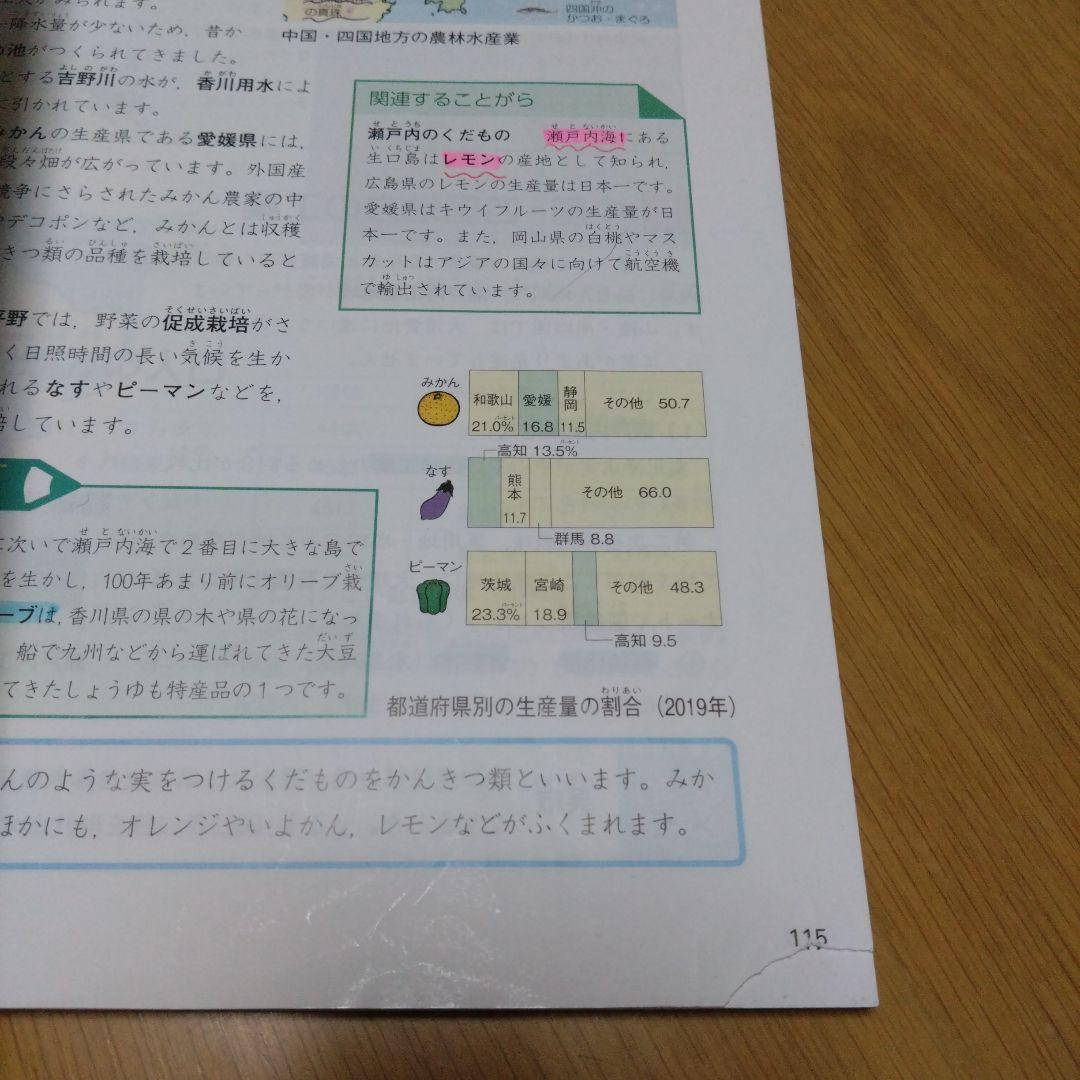 がみられます。
降水量が少ないため，昔か
池がつくられてきました。
とする吉野川の水が，香川用水によ
に引かれています。
みかんの生産県である愛媛県には，
段々畑が広がっています。外国産
競争にさらされたみかん農家の中
やデコポンなど，みかんとは収穫
きつ類の品種を栽培していると
平野では，野菜の促成栽培がさ
く日照時間の長い気候を生か
れるなすやピーマンなどを，
培しています。
に次いで瀬戸内海で2番目に大きな島で
を生かし，100年あまり前にオリーブ栽
ーブは，香川県の県の木や県の花になっ
船で九州などから運ばれてきた大豆
てきたしょうゆも特産品の1つです。
の真珠
四国沖の
かつお・まぐろ
中国・四国地方の農林水産業
関連することがら
瀬戸内のくだもの 瀬戸内海にある
生口島はレモンの産地として知られ，
広島県のレモンの生産量は日本一です。
愛媛県はキウイフルーツの生産量が日
本一です。また，岡山県の白桃やマス
カットはアジアの国々に向けて航空機
で輸出されています。
みかん
和歌山 21.0%
愛媛 16.8
静岡 11.5
その他 50.7
なす
高知 13.5%
熊本 11.7
群馬 8.8
その他 66.0
ピーマン
茨城 23.3%
宮崎 18.9
高知 9.5
その他 48.3
都道府県別の生産量の割合（2019年）
んのような実をつけるくだものをかんきつ類といいます。みか
ほかにも，オレンジやいよかん，レモンなどがふくまれます。
115